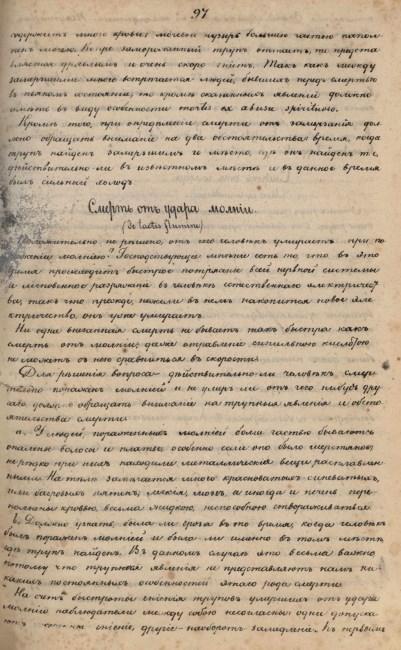 97
содержитъ много крови; мочевой пузырь большею частью напол-
ненъ мочею. Когда замороженный трупъ оттаетъ, то представ-
ляется дряблымъ и очень скоро гніетъ. Такъ какъ между
замерзшими много встрѣчается людей, бывшихъ передъ смертью
въ пьяномъ состояніи, то кромѣ сказанныхъ явленій должно
имѣть въ виду особенности
Кромѣ того, при опредѣленіи смерти отъ замерзанія дол-
жно обращать вниманіе на два обстоятельства: время, когда
трупъ найденъ замерзшимъ и мѣсто, гдѣ онъ найденъ т. е.
дѣйствительно-ли въ извѣстномъ мѣстѣ и въ данное время
былъ сильный холодъ.
Смерть отъ удара молніи.
Положительно не рѣшено, отъ чего человѣкъ умираетъ при по-
раженіи молніею. Господствующее мнѣніе есть то, что въ это
время производитъ быстрое потрясаніе всей нервной системы
и мгновенное разряжаніе въ человѣкѣ естественнаго электричест-
ва; такъ что прежде, нежели въ немъ накопится новое эле-
ктричество, онъ уже умираетъ.
Ни одна внезапная смерть не бываетъ такъ быстра какъ
смерть отъ молніи; даже отравленіе синильною кислотою
не можетъ съ нею сравниться въ скорости.
Для рѣшенія вопроса дѣйствительно-ли человѣкъ смер-
тельно пораженъ молніей и не умеръ ли отъ чего нибудь дру-
гаго должно обращать вниманіе на трупныя явленія и обсто-
ятельства смерти
а. У людей, пораженныхъ молніей большею частью бываютъ
опалены волосы и платье особенно если оно было шерстяное,
нерѣдко при нихъ находили металлическія вещи расплавлен-
ными. На тѣлѣ замѣчается много красноватыхъ синеватыхъ,
или багровыхъ пятенъ; легкія, мозгъ а иногда и печень пере-
полнены кровью, весьма жидкою, неспособною створаживаться
в. Должно узнать, была ли гроза въ то время, когда человѣкъ
былъ пораженъ молніею и была ли именно въ томъ мѣстѣ
гдѣ трупъ найденъ. Въ данномъ случаѣ это весьма важно,
потому что трупныя явленія не представляютъ намъ ни-
какихъ постоянныхъ особенностей этаго рода смерти
На счетъ быстроты гніенія труповъ умершихъ отъ удара
молніею наблюдатели между собою несогласны: одни допуска-
ютъ гніеніе, другіе наоборотъ замедленіе. Къ первымъ